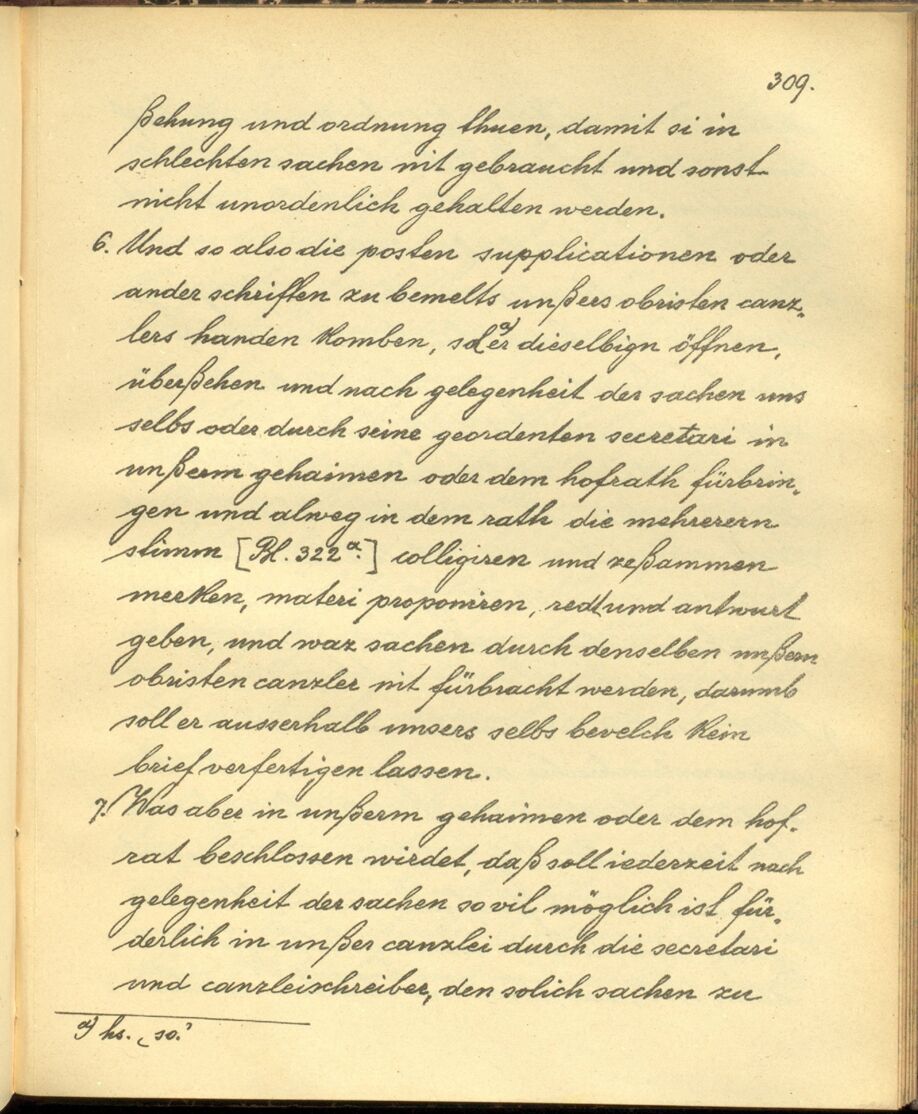 309.
ßehung und ordnung thuen, damit si in
schlechten sachen nit gebraucht und sonst
nicht unordenlich gehalten werden.
6. Und so also die posten supplicationen oder
ander schriften zu bemelts unßers obristen canz-
lers handen komben, sol a) er dieselbign öffnen,
überßehen und nach gelegenheit der sachen uns
selbs oder durch seine geordenten secretari in
unßerm gehaimen oder dem hofrath fürbrin-
gen und alweg in dem rath die mehrerern
stimm [Bl. 322a.] colligiren und zeßammen
merken, materi proponiren, redt und antwurt
geben, und waz sachen durch denselben unßern
obristen canzler nit fürbracht werden, darumb
soll er ausserhalb unsers selbs bevelch kein
brief verfertigen lassen.
7. Was aber in unßerm gehaimen oder dem hof-
rat beschlossen wirdet, daß soll iederzeit nach
gelegenheit der sachen so vil möglich ist für-
derlich in unßer canzlei durch die secretari
und canzleischreiber, den solich sachen zu
a) hs. „so."